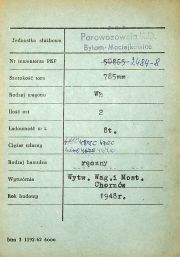 Jednostka służbowa Parowozownia K.D.
Bytom-Maciejkowice
Nr inwentarza PKP 50865-2484-8
Szerokość toru 785mm
Rodzaj wagonu Wb
Ilość osi 2
Ładowność w t 8t.
Ciężar własny
Rodzaj hamulca ręczny
Wytwórnia Wytw. Wag. i Most.
Chorzów
Rok budowy 1948r.